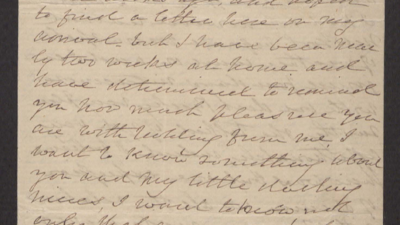 to find a letter here on my
arrival. but I have been near
ly two weeks at home and
have determined to remind
you how much pleasure you
are withholding from me. I
want to know something about
you and my little darling
nieces. I want to know not
only that